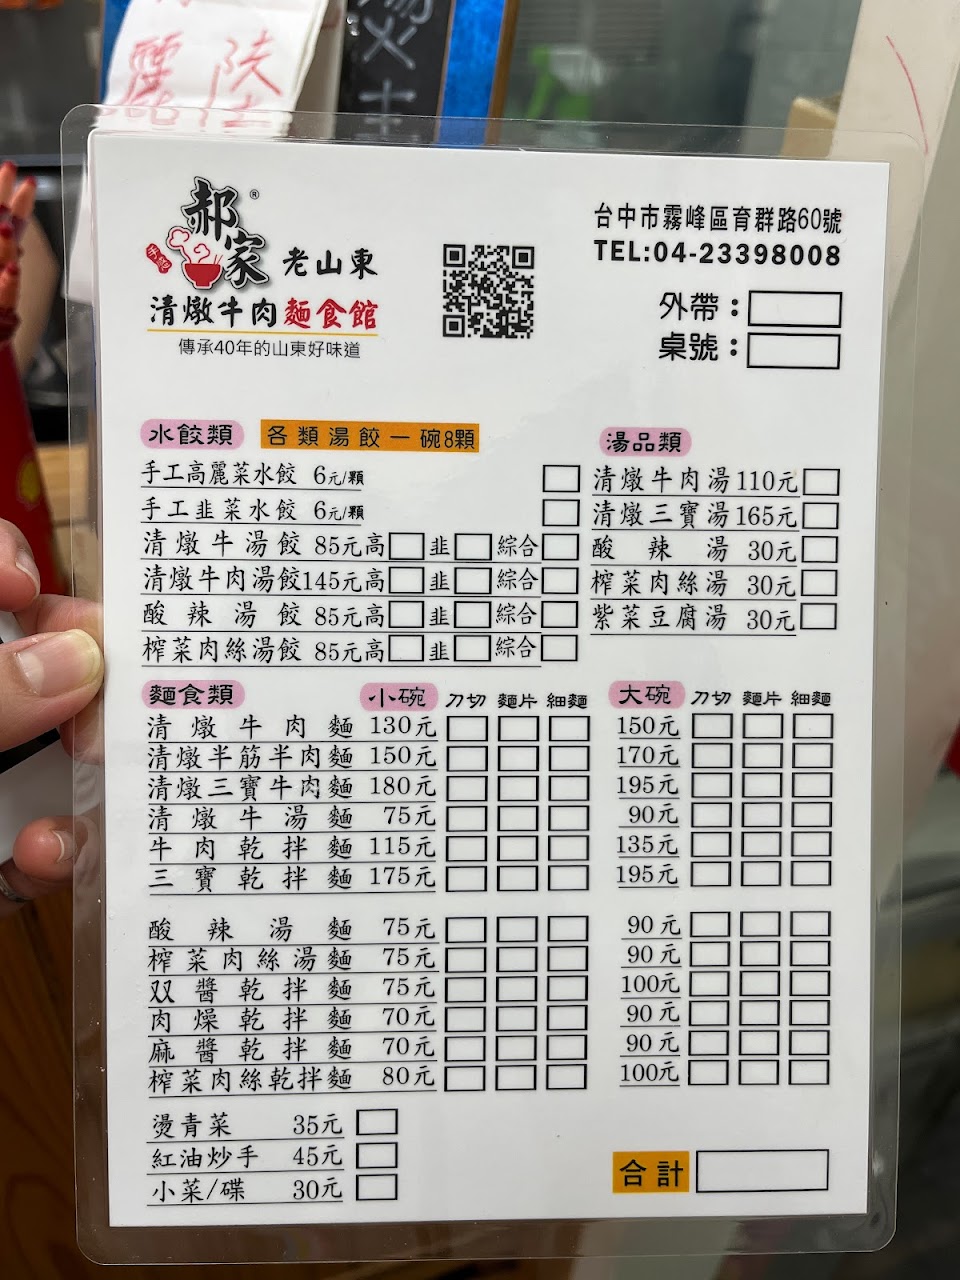 陸
郝家®
手工
老山東
清燉牛肉麵食館
傳承40年的山東好味道
台中市霧峰區育群路60號
TEL:04-23398008
外帶：
桌號：
水餃類 各類湯餃一碗8顆
手工高麗菜水餃 6元/顆
手工韭菜水餃 6元/顆
清燉牛湯餃 85元 高 韭 綜合
清燉牛肉湯餃 145元 高 韭 綜合
酸辣湯餃 85元 高 韭 綜合
榨菜肉絲湯餃 85元 高 韭 綜合
湯品類
清燉牛肉湯 110元
清燉三寶湯 165元
酸辣湯 30元
榨菜肉絲湯 30元
紫菜豆腐湯 30元
麵食類 小碗 刀切 麵片 細麵 大碗 刀切 麵片 細麵
清燉牛肉麵 130元 150元
清燉半筋半肉麵 150元 170元
清燉三寶牛肉麵 180元 195元
清燉牛湯麵 75元 90元
牛肉乾拌麵 115元 135元
三寶乾拌麵 175元 195元
酸辣湯麵 75元 90元
榨菜肉絲湯麵 75元 90元
双醬乾拌麵 75元 100元
肉燥乾拌麵 70元 90元
麻醬乾拌麵 70元 90元
榨菜肉絲乾拌麵 80元 100元
燙青菜 35元
紅油炒手 45元
小菜/碟 30元
合計